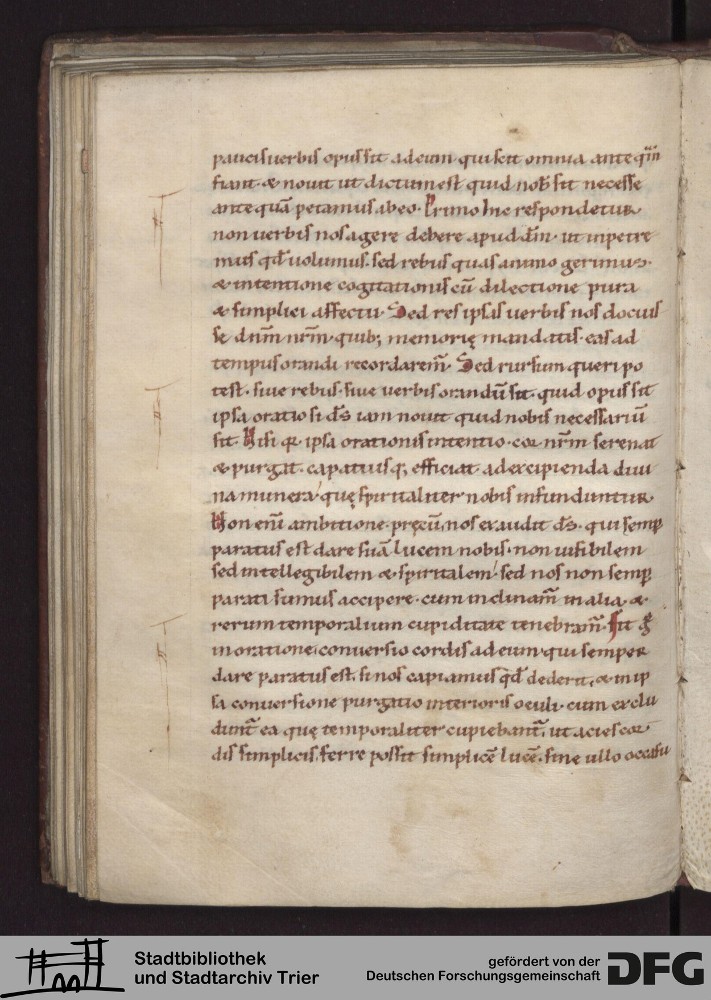 paucis uerbis opus sit ad eum qui scit omnia ante qm̄
fiant & nouit ut dictum est quid nob̄ sit necesse
ante quā petamus ab eo. Primo hic respondetur
non uerbis nos agere debere apud dm̄. ut inpetre
mus qđ uolumus. sed rebus quas animo gerimus.
& intentione cogitationis cū dilectione pura
& simplici affectu. Sed res ipsis uerbis nos docuis
se dnm̄ nrm̄ quib; memorię mandatis. eas ad
tempus orandi recordarem̄. Sed rursum queri po
test. siue rebus. siue uerbis orandū sit. quid opus sit
ipsa oratio si ds̄ iam nouit quid nobis necessariū
sit. Nisi qa ipsa orationis intentio. cor nrm̄ serenat
& purgat. capatiusq; efficiat ad excipienda diui
na munera quę spiritaliter nobis infunduntur.
Non eni ambitione pręcū nos exaudit ds̄. qui semp
paratus est dare suā lucem nobis. non uisibilem
sed intellegibilem & spiritalem. sed nos non semp
parati sumus accipere. cum inclinam̄ in alia. &
rerum temporalium cupiditate tenebram̄. Fit g̊
in oratione. conuersio cordis ad eum qui semper
dare paratus est. si nos capiamus qđ dederit. & in ip
sa conuersione purgatio interioris oculi. cum exclu
dunt̄ ea quę temporaliter cupiebant̄. ut acies cor
dis simplicis. ferre possit simplicē lucē. sine ullo occasu
Stadtbibliothek
und Stadtarchiv Trier
gefördert von der
Deutschen Forschungsgemeinschaft
DFG